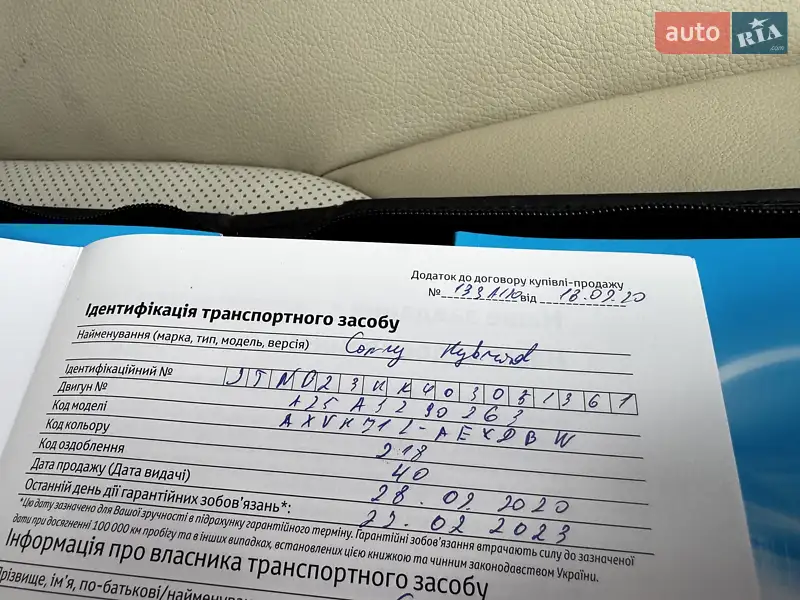 auto RIA.com
Додаток до договору купівлі-продажу
№ від 18.02.20
Ідентифікація транспортного засобу
Найменування (марка, тип, модель, версія) Camry Hybrid
Ідентифікаційний №
Двигун № A25 A3290263
Код моделі AXVH71L-AEXDBW
Код кольору 218
Код оздоблення 40
Дата продажу (Дата видачі) 28.02.2020
Останній день дії гарантійних зобов'язань*: 27.02 2023
*Цю дату зазначено для Вашої зручності в підрахунку гарантійного терміну. Гарантійні зобов'язання втрачають силу до зазначеної
дати при досягненні 100 000 км пробігу та в інших випадках, встановлених цією книжкою та чинним законодавством України.
Інформація про власника транспортного засобу
Прізвище, ім'я, по-батькові/найменування